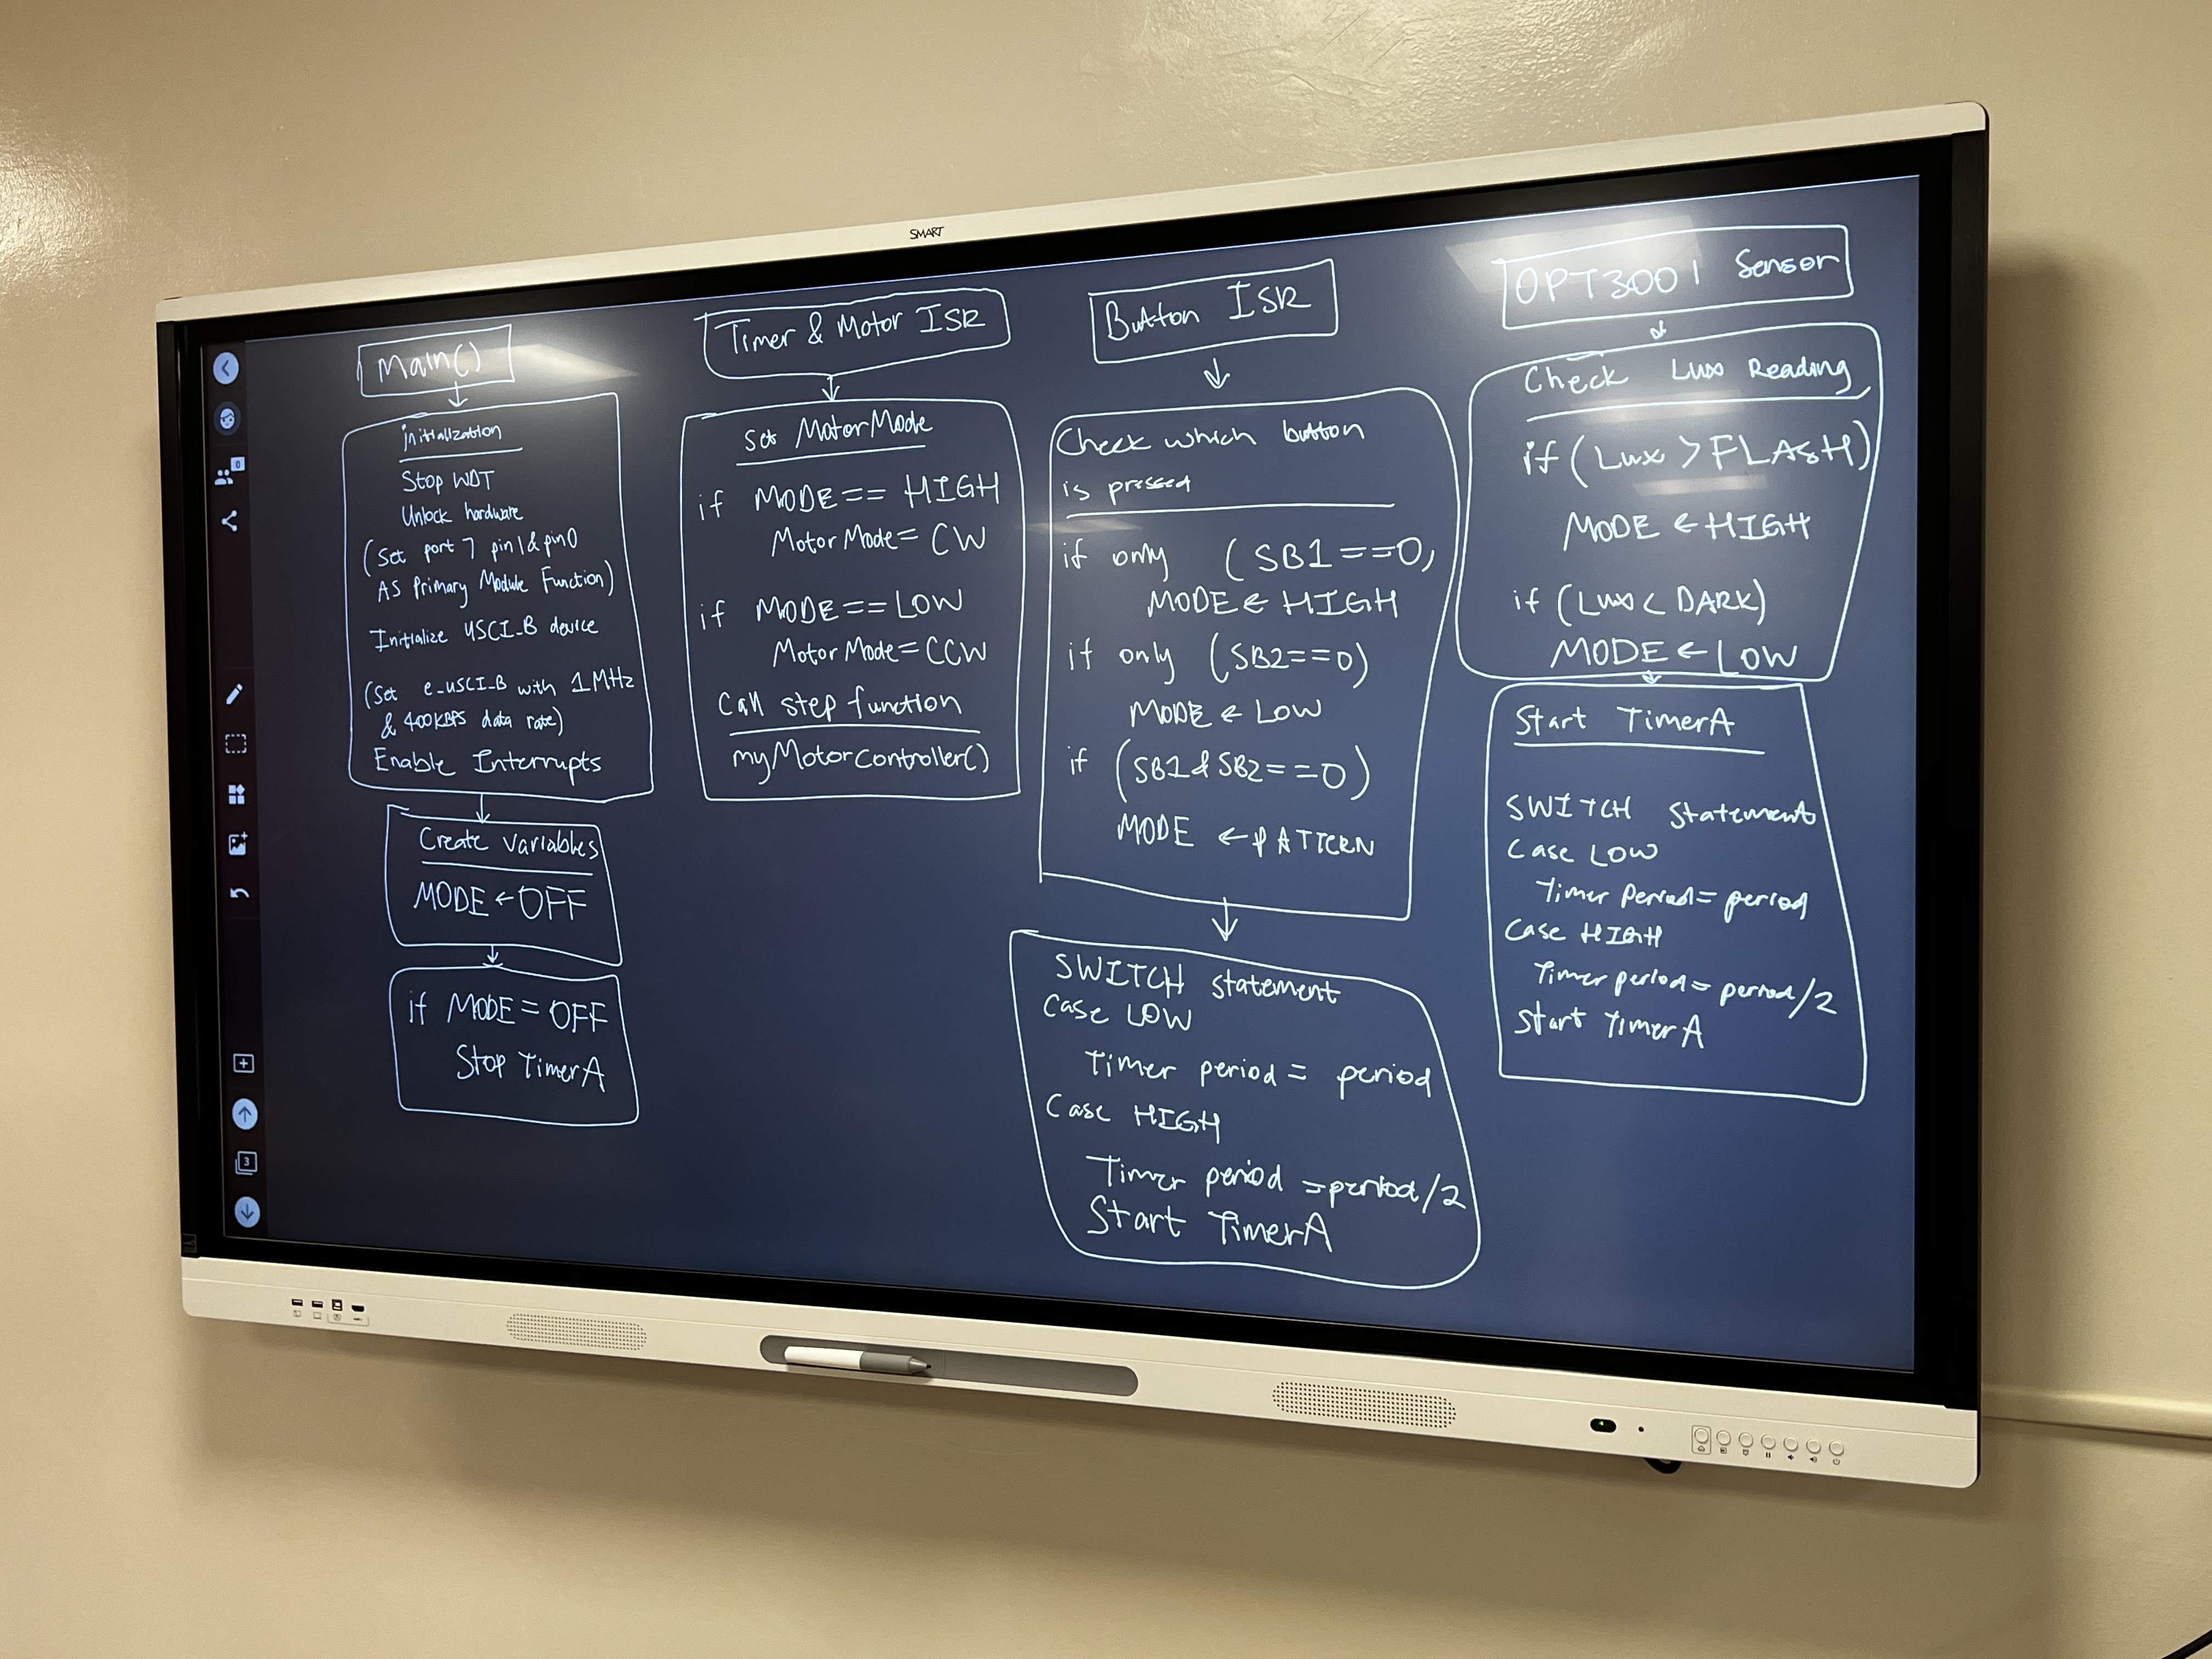 SMART
Main()
initialization
Stop WDT
Unlock hardware
(Set port 7 pin1 & pin0
AS Primary Module Function)
Initialize USCI_B device
(Set e_USCI_B with 1MHz
& 400KBPS data rate)
Enable Interrupts
Create variables
MODE ← OFF
if MODE = OFF
Stop TimerA
Timer & Motor ISR
Set MotorMode
if MODE == HIGH
MotorMode = CW
if MODE == LOW
MotorMode = CCW
Call step function
myMotorController()
Button ISR
Check which button
is pressed
if only (SB1==0,
MODE ← HIGH
if only (SB2==0)
MODE ← LOW
if (SB1 & SB2==0)
MODE ← PATTERN
SWITCH statement
Case LOW
Timer period = period
Case HIGH
Timer period = period/2
Start TimerA
OPT3001 Sensor
Check Lux Reading
if (Lux > FLASH)
MODE ← HIGH
if (Lux < DARK)
MODE ← LOW
Start TimerA
SWITCH statement
Case LOW
Timer Period = period
Case HIGH
Timer period = period/2
Start TimerA
0
3